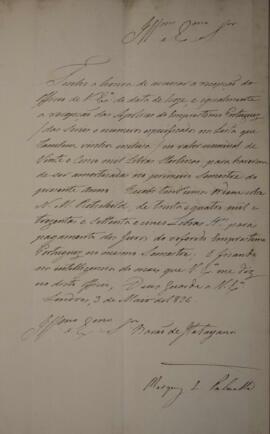 Illmo e Exmo Snr
Tenho a honra de accusar a recepção do
Officio de V. Exa de data de hoje e igualmente
a recepção das Apolices do Emprestimo Portuguez
das Series e numeros especificados na Lista que
tambem vinha inclusa no valor nominal de
Vinte e Cinco mil Libras Sterlinas para haverem
de ser amortisadas no primeiro Semestre do
presente Anno
N. M. Rothschild, de vinte e quatro mil e
trezentas e settenta e cinco Libras para
pagamento dos Juros do referido Emprestimo
Portuguez no mesmo Semestre; e ficando
na intelligencia do mais que V. Exa me diz
no dito Officio. Deus Guarde a V. Exa
Londres, 3 de Maio de 1826.
Illmo e Exmo Snr Barão de Itabayana
Marquez de Palmella